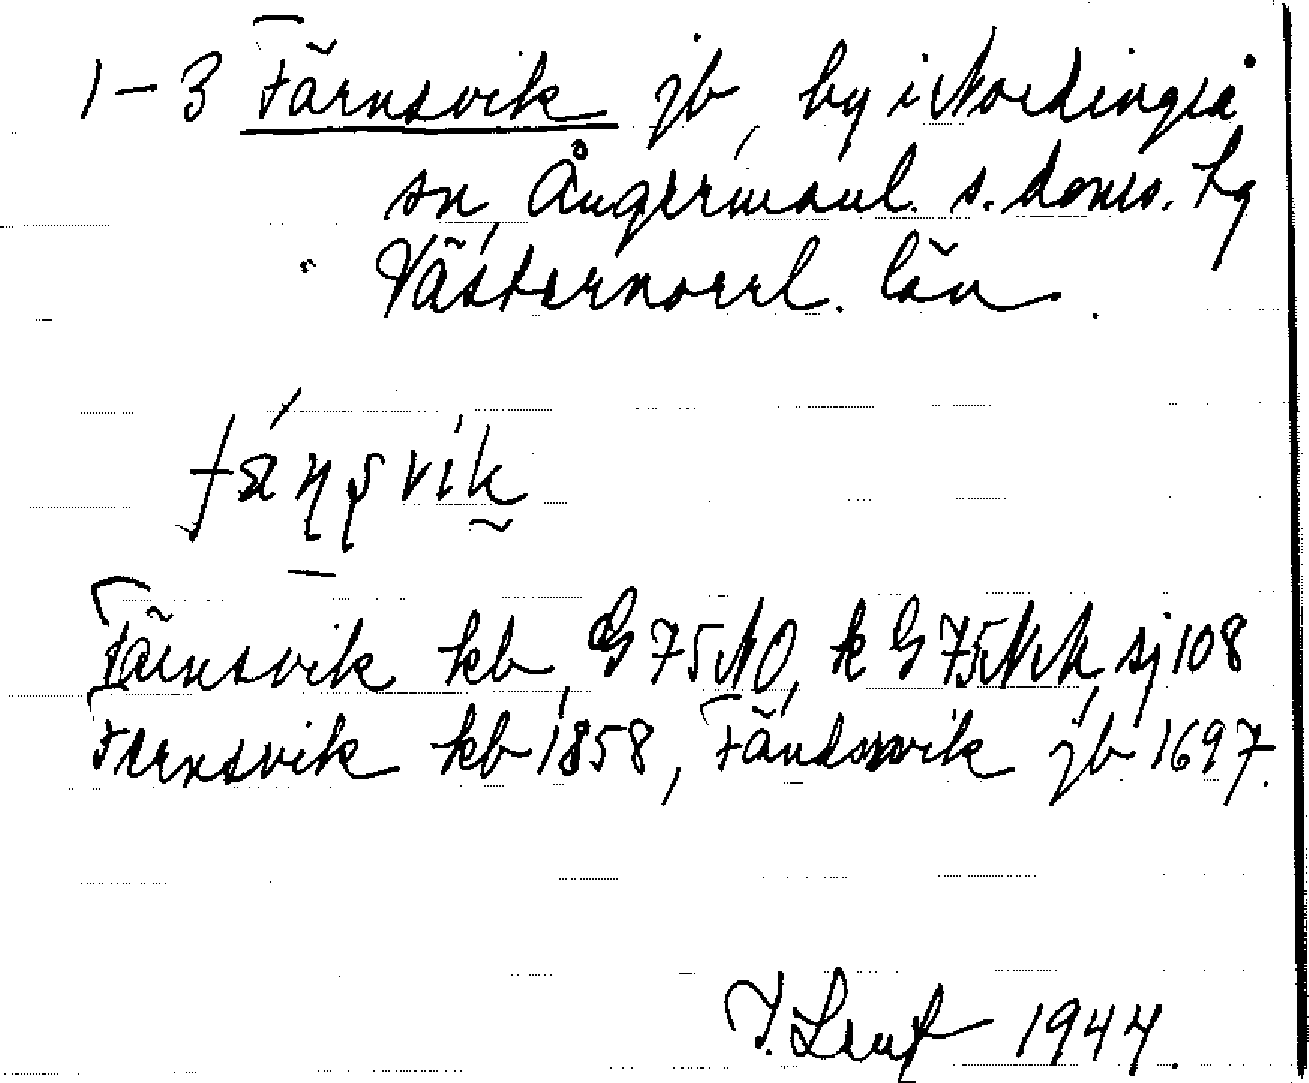 1-3 Färnsvik jb, by i Nordingrå
sn, Ångermanl. s. doms. hg
Västernorrl. län.
Färnsvik kb, G 75 NO, k G 75 NvK, sj 108
Färnsvik kb 1858, jb 1697.
1944.